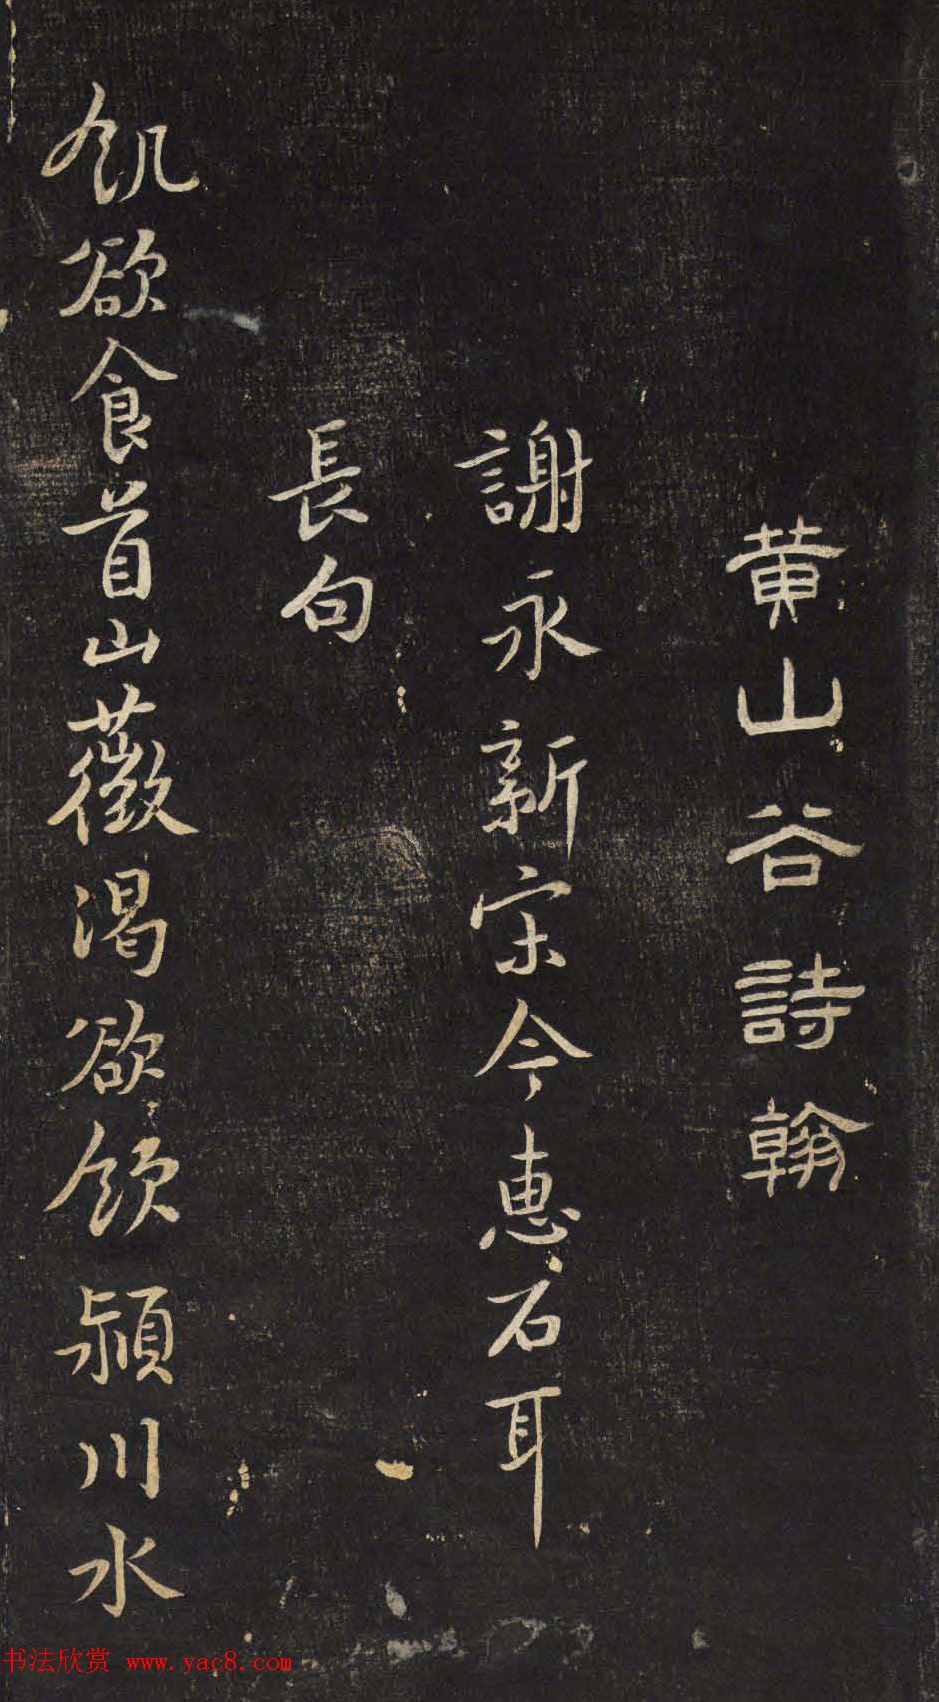 黄山谷詩翰
謝永新宋令惠石耳
長句
飢欲食首山薇渴欲飲潁川水
书法欣赏 www.yac8.com